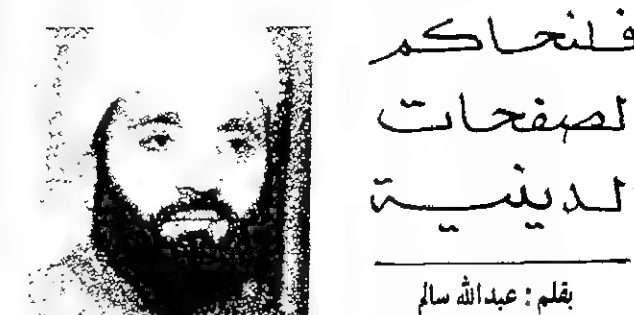 فلنحاكم
لصفحات
لدينية
بقلم : عبدالله سالم